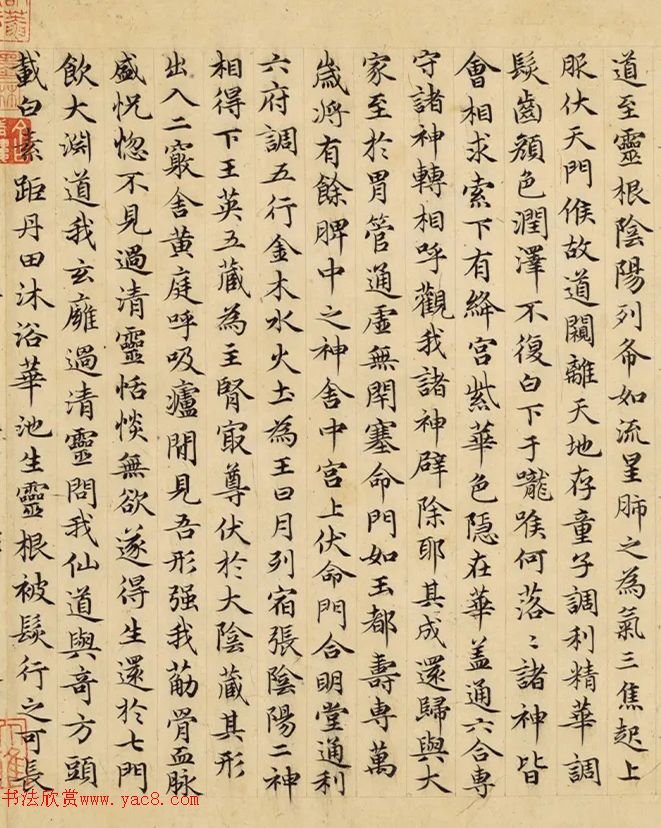 道至靈根陰陽列布如流星肺之為氣三焦起上
服伏天門候故道闚離天地存童子調利精華調
髮齒顏色潤澤不復白下于嚨喉何落〻諸神皆
會相求索下有絳宮紫華色隱在華蓋通六合專
守諸神轉相呼觀我諸神辟除耶其成還歸與大
家至於胃管通虛無閉塞命門如玉都壽專萬
歲將有餘脾中之神舍中宮上伏命門合明堂通利
六府調五行金木水火土為王日月列宿張陰陽二神
相得下王英五藏為主腎寂尊伏於大陰藏其形
出入二竅舍黃庭呼吸廬間見吾形强我筋骨血脉
盛怳惚不見過清靈恬惔無欲遂得生還於七門
飲大淵道我玄廱過清靈問我仙道與奇方頭
載白素距丹田沐浴華池生靈根被髮行之可長
书法欣赏www.yac8.com